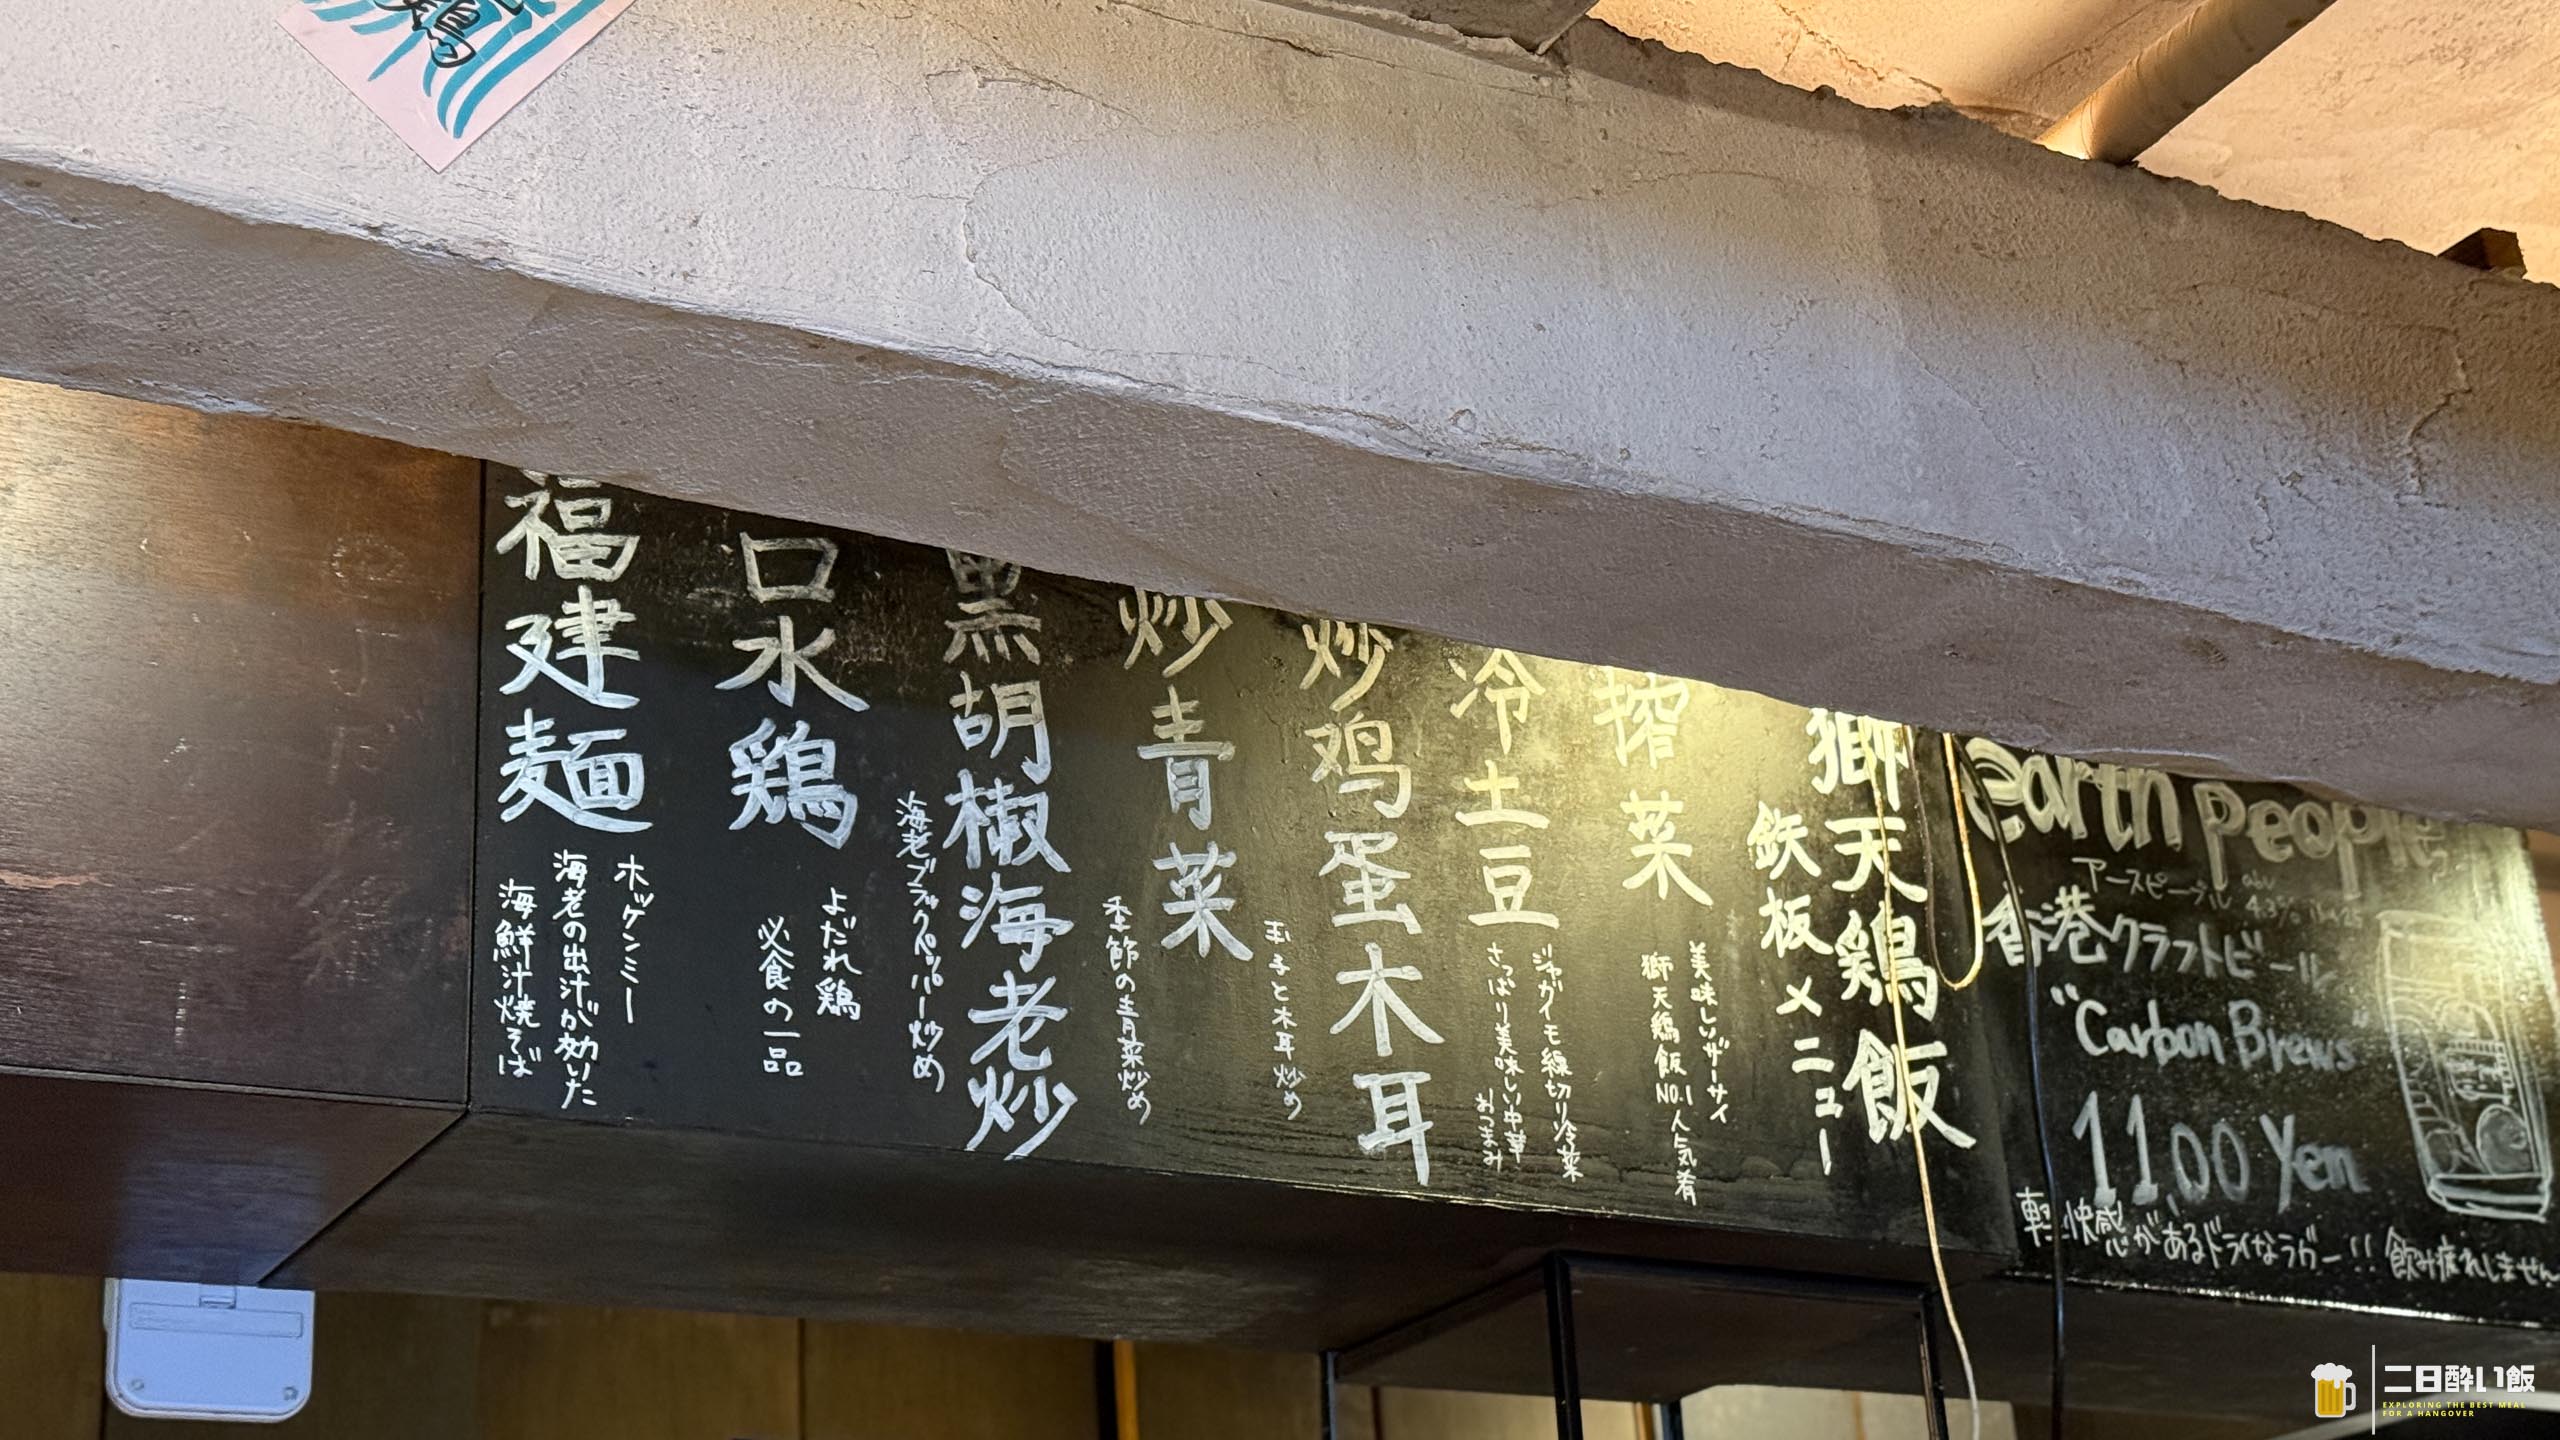 鶏
獅天鶏飯
鉄板メニュー
搾菜
美味しいザーサイ
獅天鶏飯No.1人気肴
冷土豆
ジャガイモ線切り冷菜
さっぱり美味しい中華
おつまみ
炒鸡蛋木耳
玉子と木耳炒め
炒青菜
季節の青菜炒め
黒胡椒海老炒
海老ブラックペッパー炒め
口水鶏
よだれ鶏
必食の一品
福建麺
ホッケンミー
海老の出汁が効いた
海鮮汁焼そば
earth people
アースピープル
香港クラフトビール
"Carbon Brews"
11,00 Yen
軽快感があるドライなラガー!! 飲み疲れしません
二日酔い飯
EXPLORING THE BEST MEAL
FOR A HANGOVER